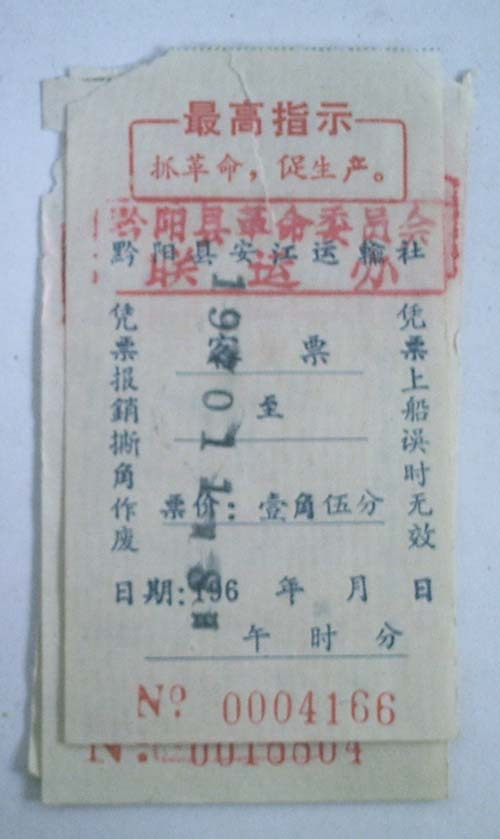 最高指示
抓革命，促生产。
黔阳县革命委员会
联运办
黔阳县安江运输社
客票
至
票价：壹角伍分
日期：196 年 月 日
午 时 分
凭票上船误时无效
凭票报銷撕角作废
No 0004166
No.